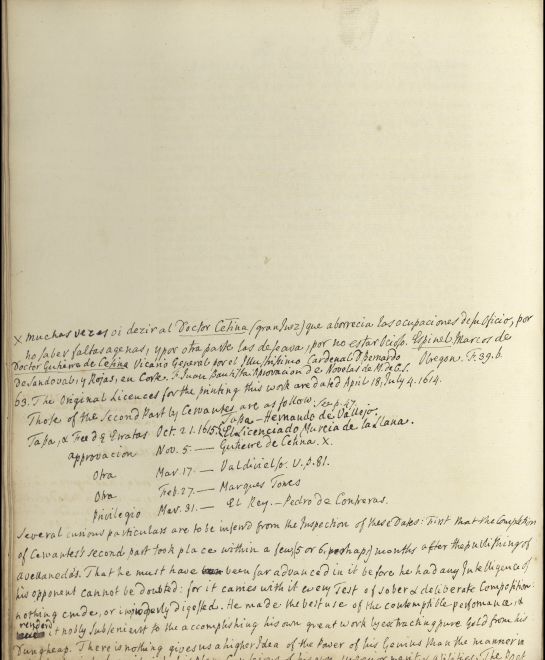 x muchas vezes oi dezir al Doctor Cetina (gran Juez) que aborrecia las ocupaciones de su Oficio, por
no saber faltas agenas, y por otra parte las deseava, por no estar Ocioso. Espinel, Marcos de
Obregon. F. 39. b.
Doctor Gutierre de Cetina Vicario General por el Illustrissimo Cardenal D. Bernardo
de Sandoval, y Rojas, en Corte. F. Juan Bautista Aprovacion de Novelas de M. de C. S.
63. The Original Licences for the printing this work are dated April 18, July 4. 1614.
Those of the Second Part by Cervantes are as follow. See p. 47.
Tasa, & Fee d Erratas Oct. 21. 1615. Tasa — Hernando de Vallejo.
El Licenciado Murcia de la Llana.
approvacion Nov. 5. — Gutierre de Cetina. X.
Otra Mar. 17. — Valdivielso. V. p. 81.
Otra Feb. 27. — Marques Torres
Privilegio Mar. 31. — El Rey. — Pedro de Contreras.
Several curious particulars are to be inferd from the Inspection of these Dates: First that the Completion
of Cervantes's Second part took place within a few (5 or 6, perhaps) months after the publishing of
avellaneda's. That he must have been far advanced in it before he had any Intelligence of
his opponent cannot be doubted: for it carries with it every Test of sober & deliberate Composition:
nothing crude, or improperly digested. He made the best use of the contemptible performance, &
renderd it nobly Subservient to the accomplishing his own great work by extracting pure Gold from his
Dungheap. There is nothing gives us a higher Idea of the Power of his Genius than the manner in